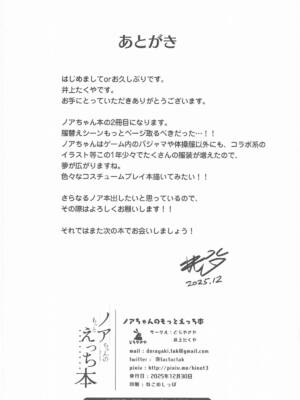 あとがき
はじめましてorお久しぶりです。
井上たくやです。
お手にとっていただきありがとうございます。
ノアちゃん本の2冊目になります。
服替えシーンもっとページ取るべきだった…！！
ノアちゃんはゲーム内のパジャマや体操服以外にも、コラボ系の
イラスト等この1年少々でたくさんの服装が増えたので、
夢が広がりますね。
色々なコスチュームプレイ本描いてみたい！！
さらなるノア本出したいと思っているので、
その際はよろしくお願いします！！
それではまた次の本でお会いしましょう！
2025.12
ノアちゃんの
もっと
えっち本
どらやきや
ノアちゃんのもっとえっち本
サークル: どらやきや
井上たくや
mail : dorayaki.tak@gmail.com
twitter : @tactactak
pixiv : http://pixiv.me/hinot3
発行日 : 2025年12月30日
印刷 : ねこのしっぽ